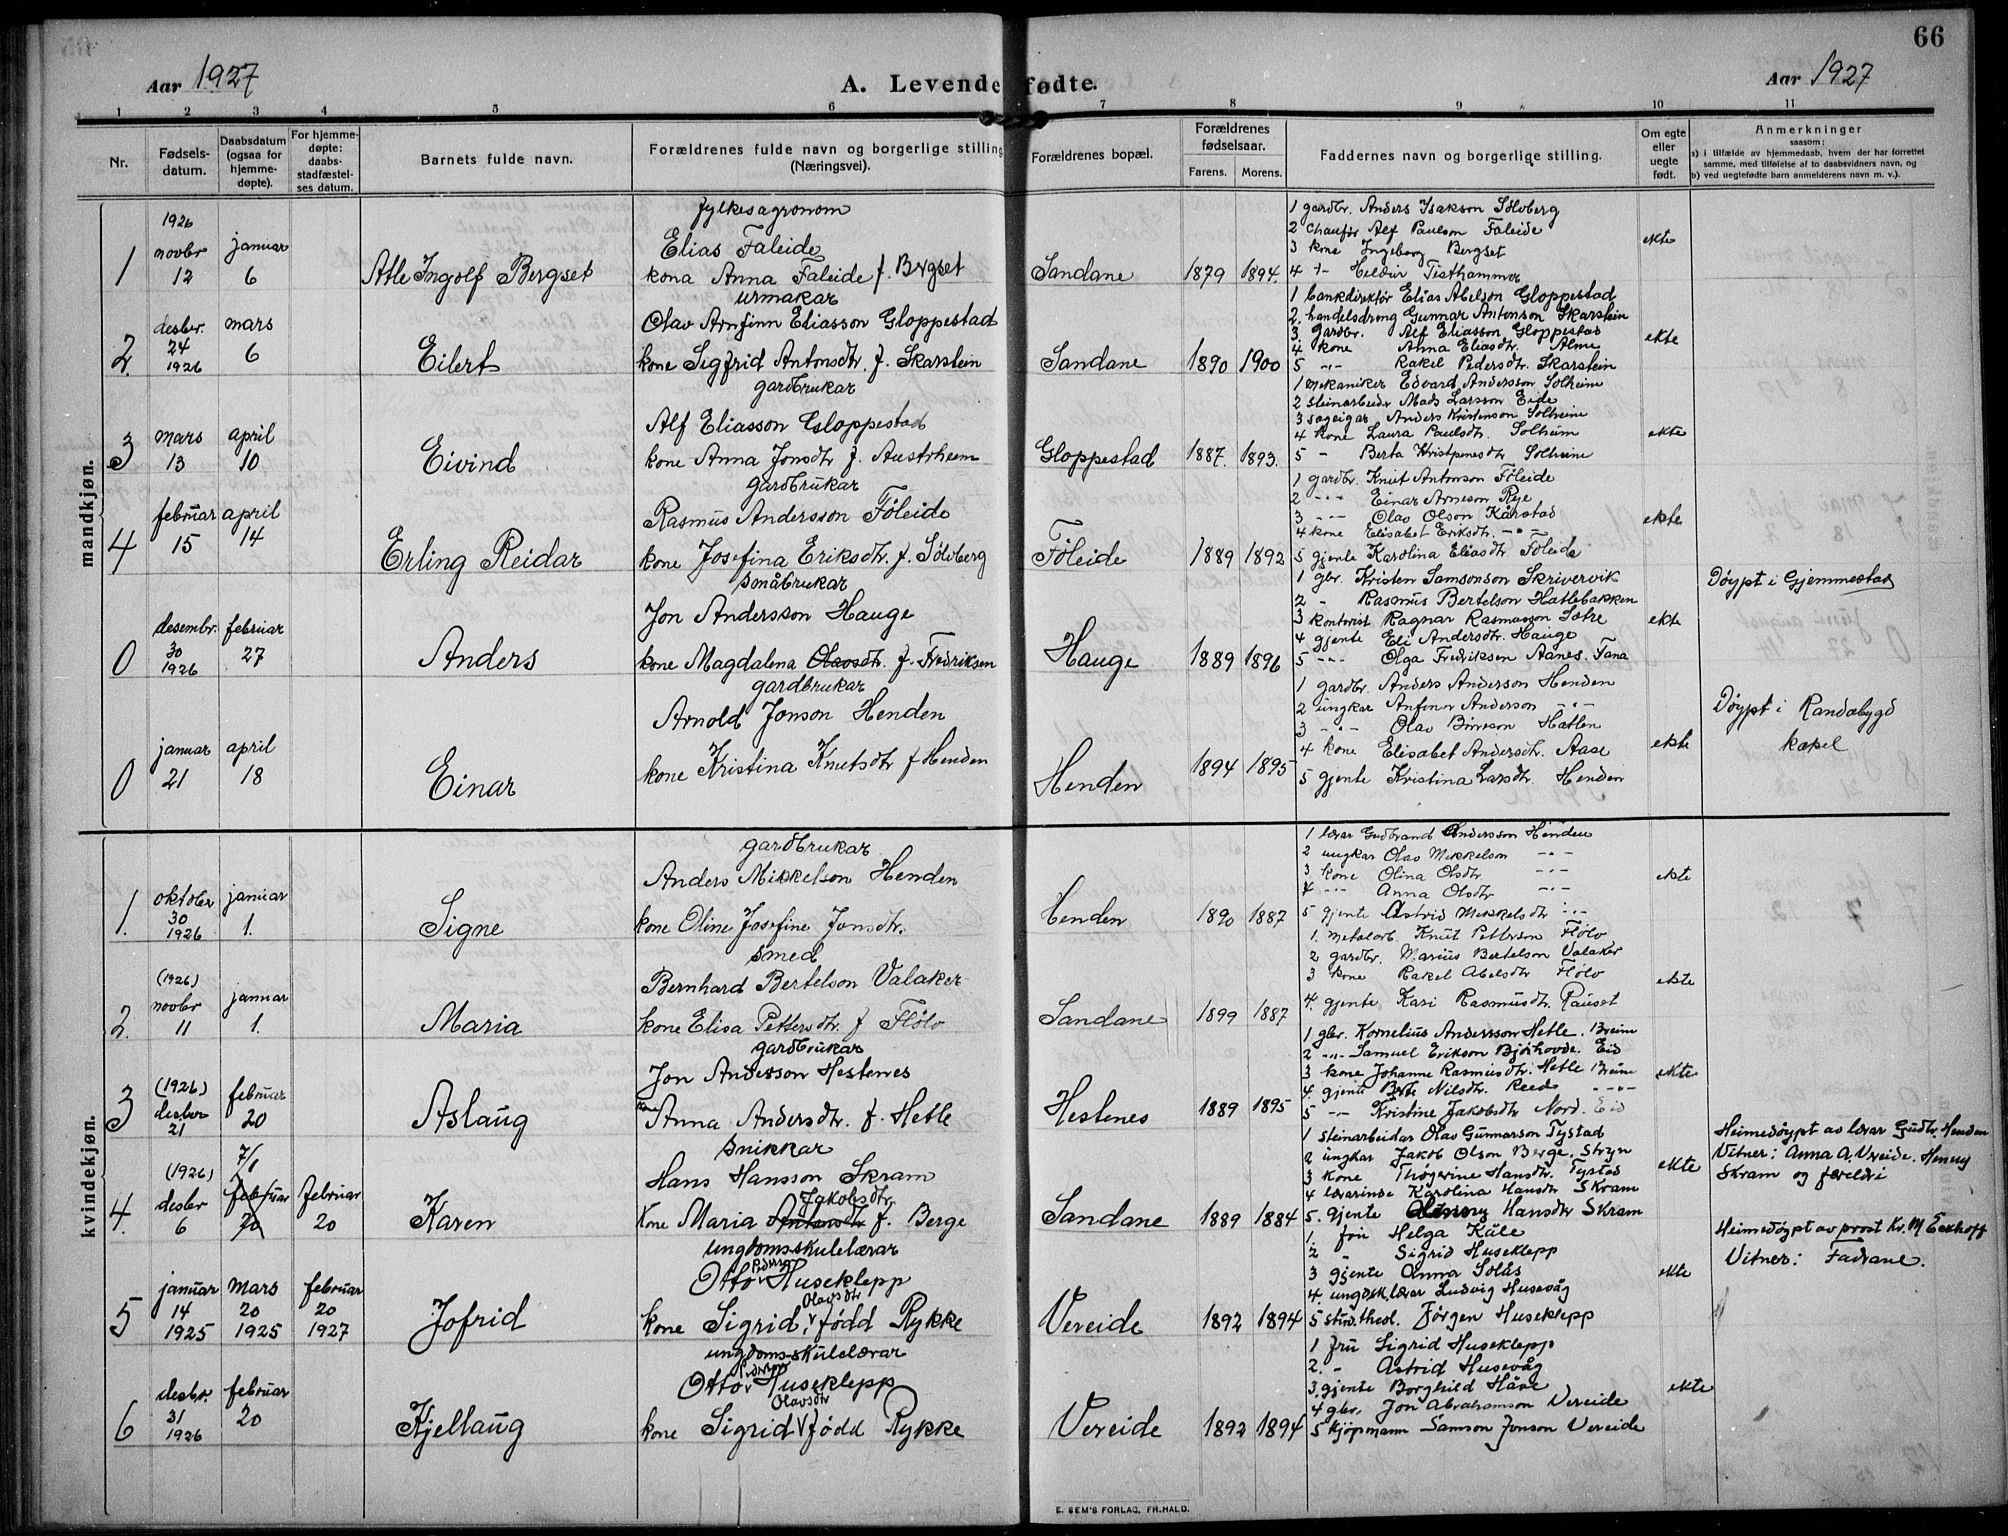 66
Aar 1927
A. Levendefødte.
Aar 1927
1 2 3 4 5 6 7 8 9 10 11
Nr.
Fødselsdatum.
Daabsdatum (ogsaa for hjemmedøpte).
For hjemmedøpte: daabsstadfæstelses datum.
Barnets fulde navn.
Forældrenes fulde navn og borgerlige stilling
(Næringsvei).
Forældrenes bopæl.
Forældrenes fødselsaar.
Farens. Morens.
Faddernes navn og borgerlige stilling.
Om egte eller uegte født.
Anmerkninger
saasom:
a) i tilfælde av hjemmedaab, hvem der har forrettet
samme, med tilføielse af to daabsvidners navn, og
b) ved uegtefødte barn anmelderens navn m. v.).
mandkjøn.
1
1926
novbr
12
januar
6
Atle Ingolf Bergset
fylkesagronom
Elias Faleide
kona Anna Faleide f. Bergset
Sandane
1879 1894.
1 gardbr. Anders Isakson Sølvberg
2 Chaufør Alf Paulson Faleide
3 kone Ingeborg Bergset
4 Heldur Tisthammer
ekte
2.
desbr.
24
1926
mars
6
Eilert
urmakar
Olav Arnfinn Eliasson Gloppestad
kone Sigfrid Antonsdtr. f. Skarstein
Sandane
1890 1900
1 bankdirektør Elias Abelson Gloppestad
2. handelsdreng Gunnar Antonson Skarstein
3. Gardbr. Alf Eliasson Gloppestad
4 kone Anna Eliasdtr. Alme
5 -"- Rakel Pedersdtr. Skarstein
ekte
3
mars
13
april
10
Eivind
gardbrukar
Alf Eliasson Gloppestad
kone Anna Jonsdtr f. Austrheim
Gloppestad
1887. 1893.
1 Mekaniker Edvard Andersson Solheim
2 Steinarbeider Mads Larsson Eide
3 sageigar Anders Kristenson Solheim
4 kone Laura Paulsdtr. Solheim
5 - Berta Kristpensdtr Solheim
ekte
4
februar
15
april
14
Erling Reidar
gardbrukar
Rasmus Andersson Føleide
kone Josefina Eriksdtr. f. Sølvberg
Føleide
1889 1892
1 gardbr. Knut Antonson Føleide
2 -"- Einar Arneson Rye
3 -"- Olav Olson Kårstad
4 kone Elisabet Eriksdtr. -"-
5 gjente Karolina Eliasdtr Føleide
ekte
0
desembr.
30
1926
februar
27
Anders
småbrukar
Jon Andersson Hauge
kone Magdalena Olavsdtr. f. Fredriksen
Hauge
1889 1896
1 gbr. Kristen Samsonson Skrivervik
2 - Rasmus Bertelson Hatlebakken
3 kontorist Ragnar Rasmusson Sætre
4 gjente Eli Andersdtr. Hauge
5 -"- Olga Fredriksen Aanes. Tana
ekte
Døypt i Gjemmestad
0
januar
21
april
18
Einar
gardbrukar
Arnold Jonson Henden
kone Kristina Knutsdtr f Henden
Henden
1894 1895
1 gardbr. Anders Anderson Henden
2 ungkar Anfinn Anderson -"-
3 -"- Olav Børreson Hatlen
4 kone Elisabet Andersdtr. Aase
5 gjente Kristina Larsdtr. Henden
ekte
Døypt i Randabygd
kapel
kvindekjøn.
1.
oktober
30
1926
januar
1.
Signe
gardbrukar
Anders Mikkelson Henden
kone Oline Josefine Jonsdtr.
Henden
1890 1887
1 lærar Gudbrand Andersson Henden
2 ungkar Olav Mikkelson -"-
3 kone Olina Olsdtr -"-
4 -"- Anna Olsdtr -"-
5 gjente Astrid Mikkelsdtr -"-
ekte
2.
(1926)
novbr
11
januar
1.
Maria
smed
Bernhard Bertelson Valaker
kone Elisa Pettersdtr. f Flølo
Sandane
1899 1887
1. metalarb. Knut Petterson Flølo
2 gardbr. Marius Bertelson Valaker
3 kone Rakel Abelsdtr Flølo
4. gjente Kari Rasmusdtr. Rauset
ekte
3
(1926)
desbr
21
februar
20
Aslaug
gardbrukar
Jon Andersson Hestenes
kone Anna Andersdtr. f. Hetle
Hestenes
1889 1895
1 gbr. Kornelius Andersson Hetle. Breim
2 -"- Samuel Erikson Bjørhovde. Eid
3 kone Johanne Rasmusdtr. Hetle Breim
4. gjente Berte Nilsdtr. Reed -"-
5 -"- Kristine Jakobsdtr Nord. Eid
ekte
4.
(1926)
desbr
6
7/1
februar
20
februar
20
Karen
snikkar
Hans Hansson Skram
Jakobsdtr
Kone Maria Antonsdtr f. Berge
Sandane
1889 1884
1 Steinarbeidar Olav Gunnarson Tystad
2 ungkar Jakob Olson Berge. Stryn
3 kone Thogerine Hansdtr. Tystad
4 lærarinde Karolina Hansdtr Skram
5. gjente Hansdtr Skram
ekte
Heimedøypt av lærar Gudbr. Henden
Vitner: Anna A. Vereide. Henny
Skram og foreldri
5
januar
14
1925
mars
20
1925
februar
20
1927
Jofrid
ungdomsskulelærar
Pederson
Otto Huseklepp
Olavsdtr
kone Sigrid født Rykke
Vereide
1892 1894
1. frü Helga Kåle
2 " Sigrid Huseklepp
3 gjente Anna Solås
4. ungdsk.lærar Ludvig Husevåg
5 stud. theol. Jørgen Huseklepp
ekte
Heimedøypt av prost Kr. M Eckhoff
Vitner: Fadrane.
6
desbr.
31
1926
februar
20
Kjellaug
ungdomsskulelærar
Pederson
Otto Huseklepp
Olavsdtr
kone Sigrid født Rykke
Vereide
1892 1894
1 frü Sigrid Huseklepp
2. - Astrid Husevåg
3. gjente Borghild Håve
4 gbr. Jon Abrahamson Vereide
5 kjøpmann Samson Jonson Vereide
ekte
E. SEM'S FORLAG, FR.HALD.